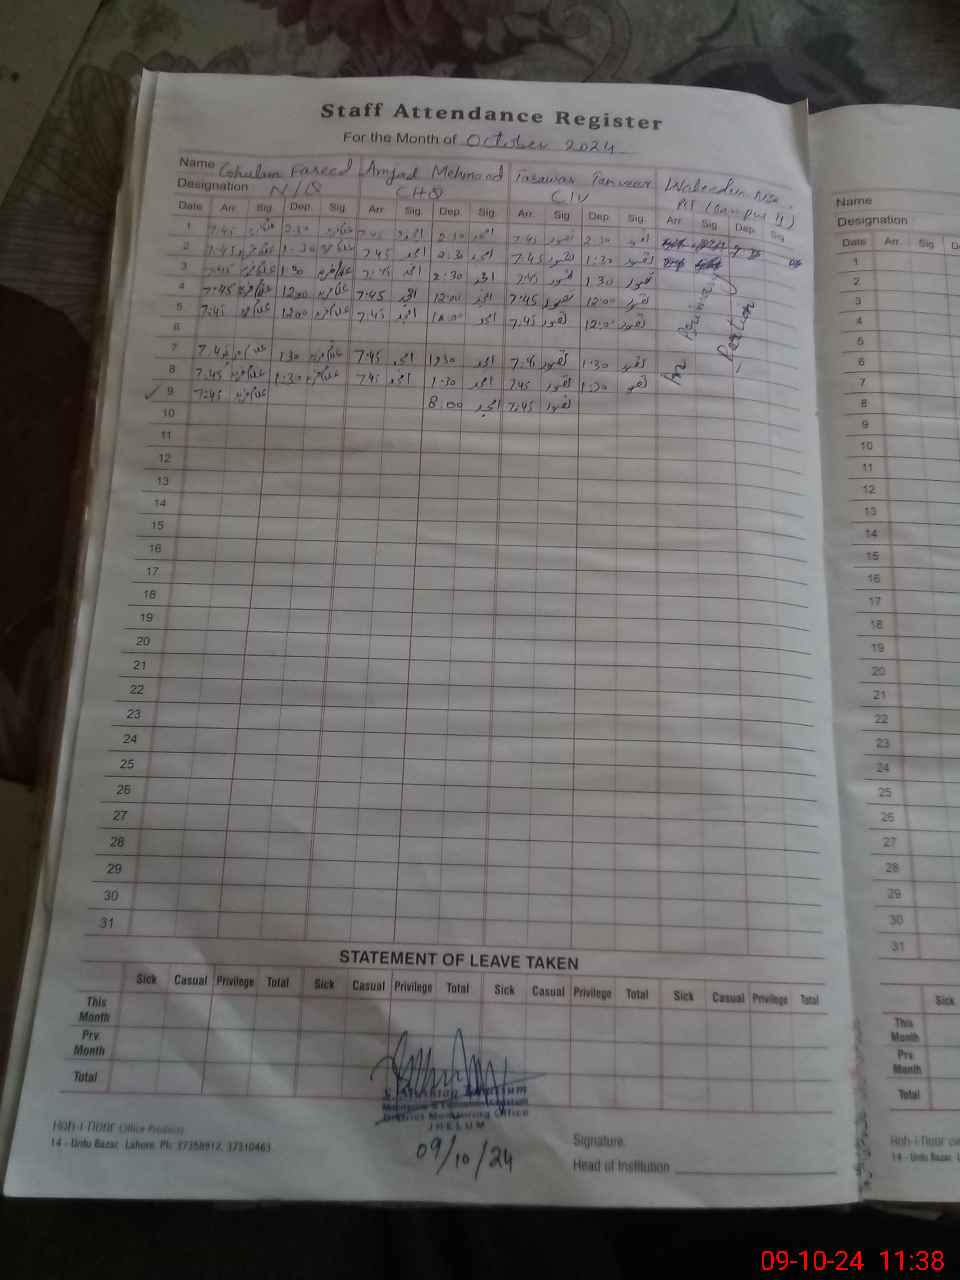 Staff Attendance Register
For the Month of October 2024
Name Ghulam Fareed Amjad Mehmood Tasawar Tanveer Waheedun Nisa
Designation N/Q CHQ C/V
Date Arr. Sig. Dep. Sig. Arr. Sig. Dep. Sig. Arr. Sig. Dep. Sig. Arr. Sig. Dep. Sig.
1 7:45 2:30 7:45 2:30 امجد 7:45 2:30
2 7:45 1:30 7:45 امجد 2:30 امجد 7:45 1:30
3 7:45 1:30 7:45 امجد 2:30 امجد 7:45 1:30
4 7:45 12:00 7:45 امجد 12:00 امجد 7:45 12:00
5 7:45 12:00 7:45 امجد 12:00 امجد 7:45 12:00
6
7 7:45 1:30 7:45 امجد 1:30 امجد 7:45 1:30
8 7:45 1:30 7:45 امجد 1:30 امجد 7:45 1:30
9 7:45 8:00 امجد 7:45
10
11
12
13
14
15
16
17
18
19
20
21
22
23
24
25
26
27
28
29
30
31
At Primary Portion
STATEMENT OF LEAVE TAKEN
Sick Casual Privilege Total Sick Casual Privilege Total Sick Casual Privilege Total Sick Casual Privilege Total
This Month
Prv. Month
Total
District Monitoring Office
JHELUM
09/10/24
Koh-i-Noor Office Products
14 - Urdu Bazar, Lahore. Ph: 37358912, 37310463
Signature.
Head of Institution
Name
Designation
Date Arr. Sig. D
1
2
3
4
5
6
7
8
9
10
11
12
13
14
15
16
17
18
19
20
21
22
23
24
25
26
27
28
29
30
31
Sick
This Month
Prv. Month
Total
Koh-i-Noor
14 - Urdu Bazar, L
09-10-24 11:38